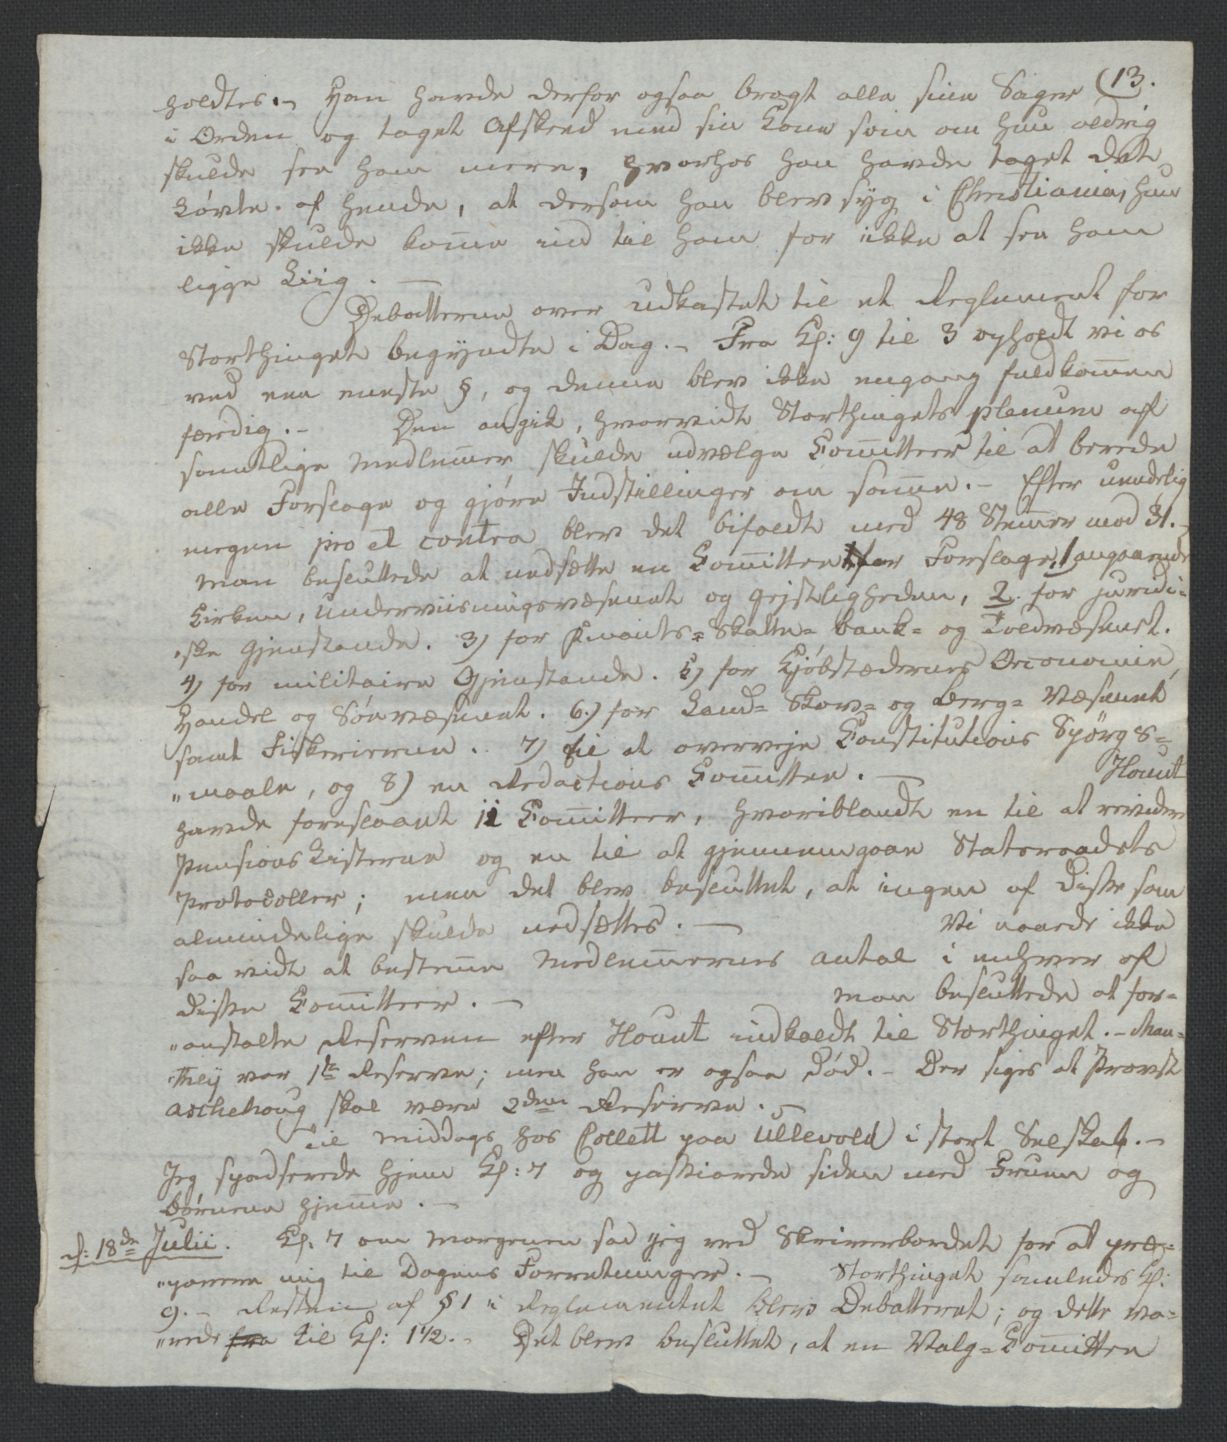 holdtes. – Han havde derfor ogsaa bragt alle sine Sager (13.
i Orden og taget Afskeed med sin Kone som om hun aldrig
skulde see ham mere, hvorhos han havde taget det
Løvte af hende, at dersom han blev syg i Christiania, hun
ikke skulde kom̄e ind til ham for ikke at see ham
ligge Liig. –
Debatterne over Udkastet til et Reglement for
Storthinget begyndte i Dag. – Fra Kl: 9 til 3 opholdt vi os
ved een eneste §, og denne blev ikke engang fuldkom̄en
færdig. – Den angik, hvorvidt Storthingets plenum af
samtlige Medlem̄er skulde udvælge Com̄itteer til at berede
alle Forslage og gjøre Indstillinger om sam̄e. – Efter uendelig
megen pro et contra blev det bifaldt med 48 Stem̄er mod 31. –
Man besluttede at nedsætte en Com̄ittee for Forslage, 1) angaaende
Kirken, Underviisningsvæsenet og Gejstligheden, 2. for juridi=
"ske Gjenstande. 3) for Finants= Skatte= Bank= og Toldvæsenet.
4) for militaire Gjenstande. 5) for Kjøbstædernes Oeconomie,
Handel og Søevæsenet. 6.) for Land= Skov= og Berg= Væsenet
samt Fiskerierne. 7) til at overveje Constitutions Spørgs=
"maale, og 8) en Redactions Com̄ittee. – Hount
havde foreslaaet 11 Com̄itteer, hvoriblandt en til at revidere
Pensions Listerne og en til at gjennemgaae Statsraadets
Protocoller; men det blev besluttet, at ingen af disse som
almindelige skulde nedsættes. – Vi naaede ikke
saa vidt at bestem̄e Medlem̄ernes Antal i enhver af
disse Com̄itteer. – Man besluttede at for=
"anstalte Reserven efter Hount indkaldt til Storthinget. – Man=
they var 1ste Reserve; men han er ogsaa død. – Der siges at Provst
Aschehoug skal være 2den Reserve. –
Til Middags hos Collett paa Ullevold i stort Selskab. –
Jeg spadserede hjem Kl: 7 og passiarede siden med Fruen og
Børnene hjem̄e. –
d: 18de Julii. Kl. 7 om Morgenen sad jeg ved Skriverbordet for at præ=
"parere mig til Dagens Forretninger. – Storthinget samledes Kl:
9. – Resten af § 1 i Reglementet blev Debatteret; og dette va=
"rede fra til Kl: 1½. – Det blev besluttet, at en Valg=Com̄ittee